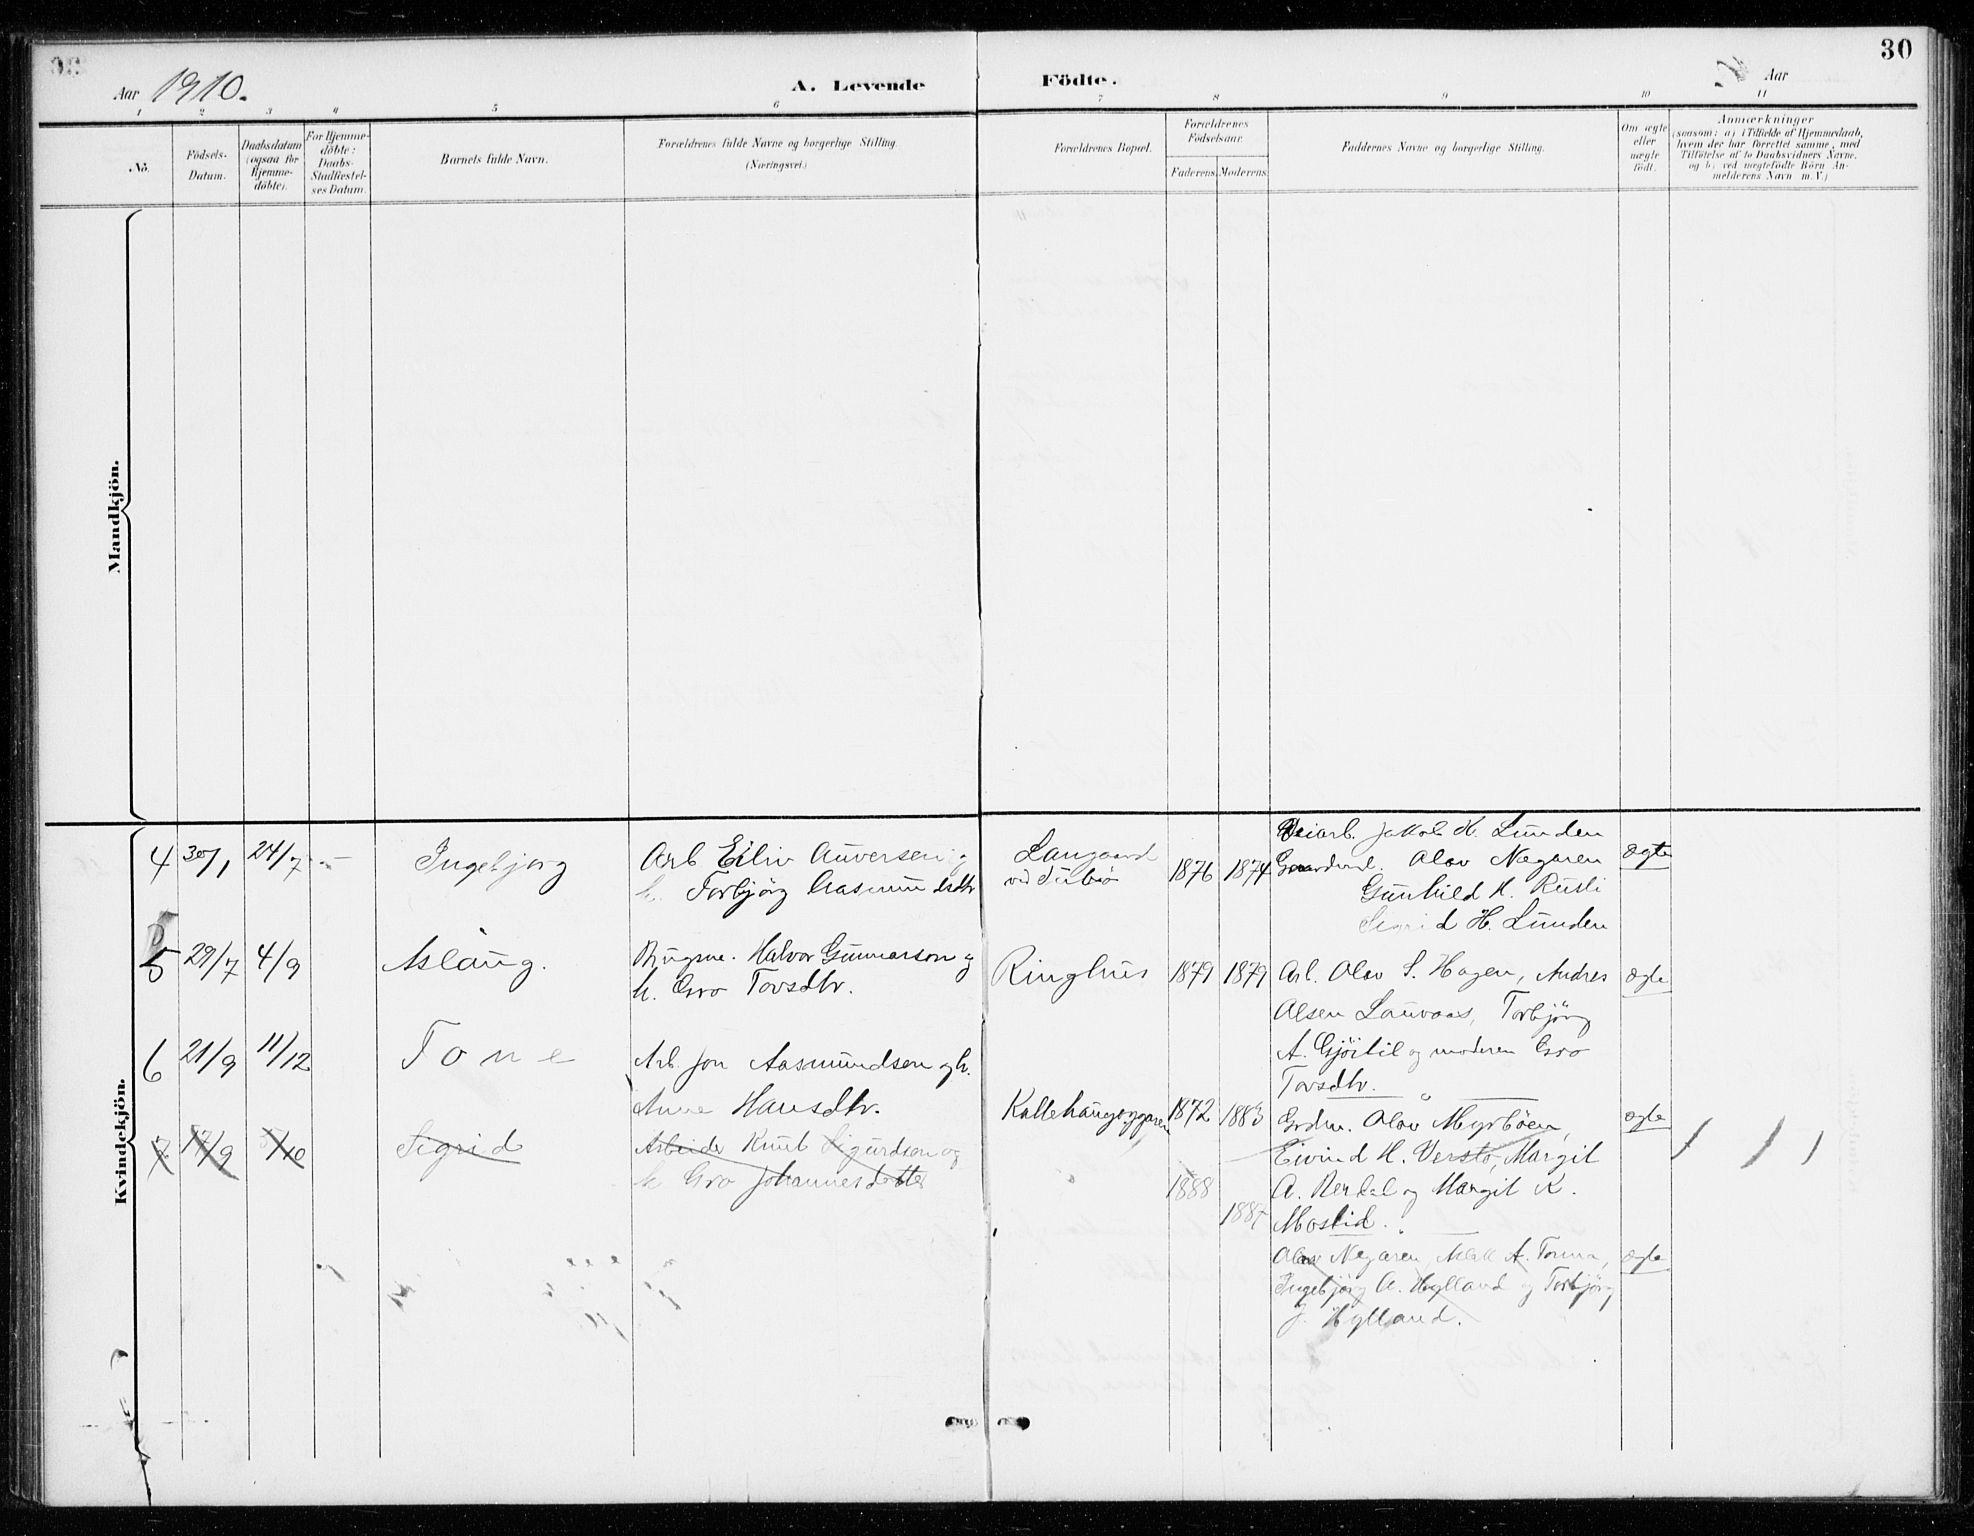 30
Aar 1910.
A. Levende Födte.
Aar
1 2 3 4 5 6 7 8 9 10 11
No.
Födsels-Datum.
Daabsdatum (ogsaa for Hjemme-döbte).
For Hjemme-döbte: Daabs-Stadfæstel-ses Datum.
Barnets fulde Navn.
Forældrenes fulde Navne og borgerlige Stilling.
(Næringsvei.)
Forældrenes Bopæl.
Forældrenes Födselsaar.
Faderens. Moderens.
Faddernes Navne og borgerlige Stilling.
Om ægte eller uægte födt.
Anmærkninger
(saasom: a) i Tilfælde af Hjemmedaab,
hvem der har forrettet samme, med
Tilföielse af to Daabsvidners Navne,
og b) ved uægtefödte Börn An-
melderens Navn m. V.)
Mandkjön.
Kvindekjön.
4 30/1 24/7 – Ingebjorg
Arb Eiliv Auversen og
h. Torbjörg Aasmundsdtr
Langaard
1876 1874
Veiarb. Jakob K. Lunden
Gaardmd. Olav Nægaren
Gunhild K. Rusli
Sigrid H. Lunden
ægte
5 29/7 4/9 Aslaug.
Bugsme. Halvor Gunnarson og
h. Gro Tovsdtr.
Ringhus
1879 1879
Arb. Olav S. Hagen, Andres
Olsen Lauvaas, Torbjörg
A. Gjöitil og moderen Gro
Tovsdtr.
ægte
6 21/9 11/12 Tone
Arb. Jon Aasmundsen og h.
Anne Hansdtr.
1872 1883
Grdm. Olav Myrböen,
Eivind H. Versto, Margit
A. Berdal og Margit K.
Mostid.
ægte
7. 17/9 /10 Sigrid
Arbeider Knut Sigurdsen og
h Gro Johannesdotter
1888 1885
Olav Nægaren, A. Torma,
Ingebjörg A. Hylland og Torbjörg
J. Hylland.
ægte